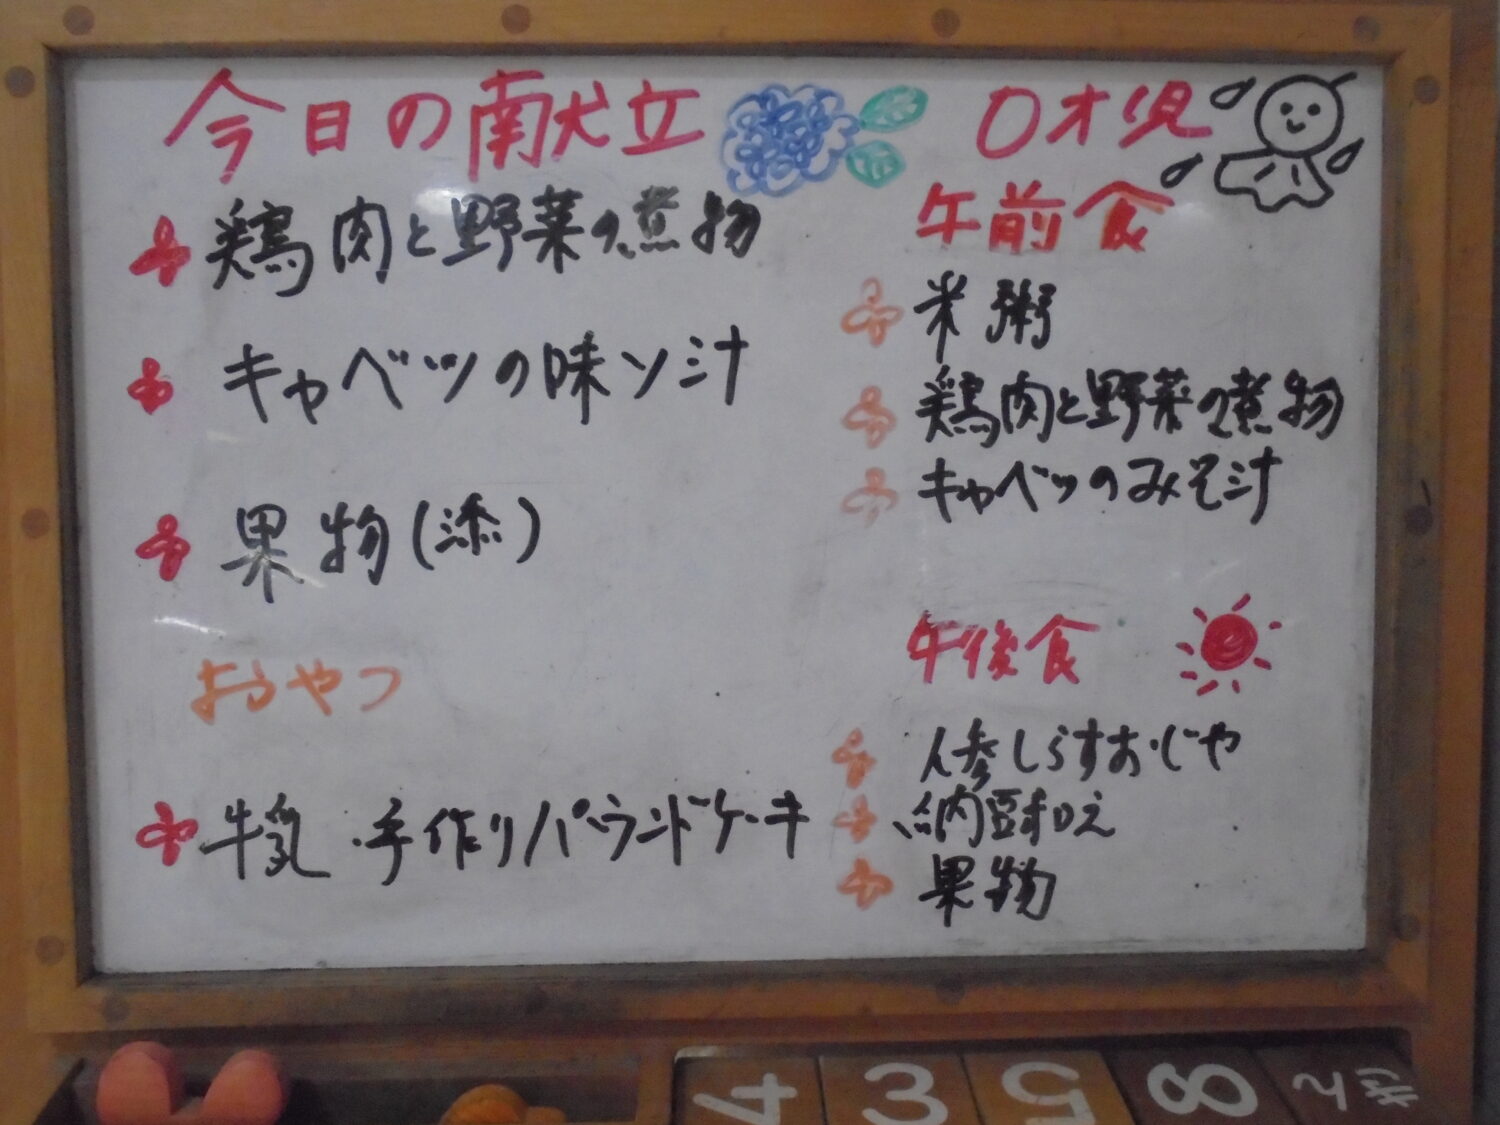 今日の献立
鶏肉と野菜の煮物
キャベツの味ソ汁
果物(添)
おやつ
牛乳・手作りパウンドケーキ
0才児
午前食
米粥
鶏肉と野菜の煮物
キャベツのみそ汁
午後食
人参しらすおじや
納豆和え
果物
4 3 5 8